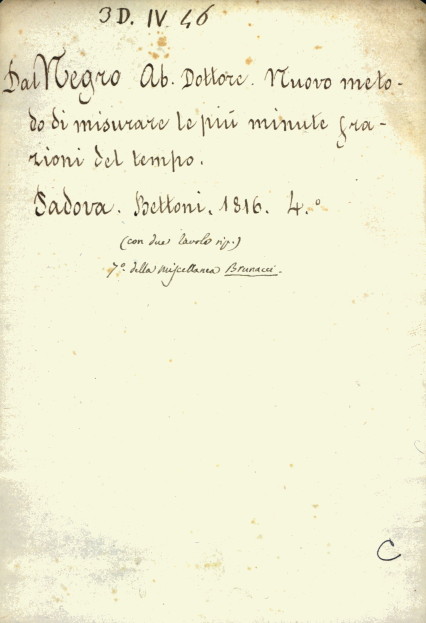 3 D. IV. 46
Dal Negro Ab. Dottore. Nuovo meto-
do di misurare le più minute fra-
zioni del tempo.
Padova. Bettoni. 1816. 4.°
(con due tavole rip.)
7°. della miscellanea Brunacci.
C